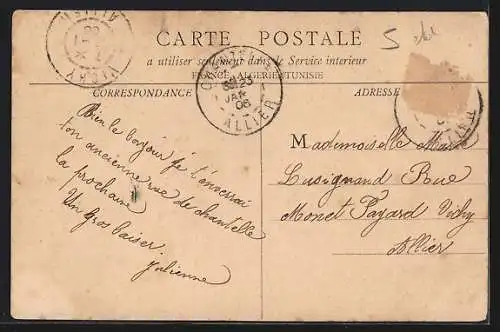 CARTE POSTALE
5
a utiliser seulement dans le Service interieur
FRANCE, ALGERIE, TUNISIE
CORRESPONDANCE
ADRESSE
VICHY
ALLIER
JANV
06
ALLIER
Bien le bonjour je t'enverrai
ton ancienne rue de chantelle
la prochaine
Un gros baiser.
Julienne
Mademoiselle Marie
Lusignand Rue
Monet Fayard Vichy
Allier